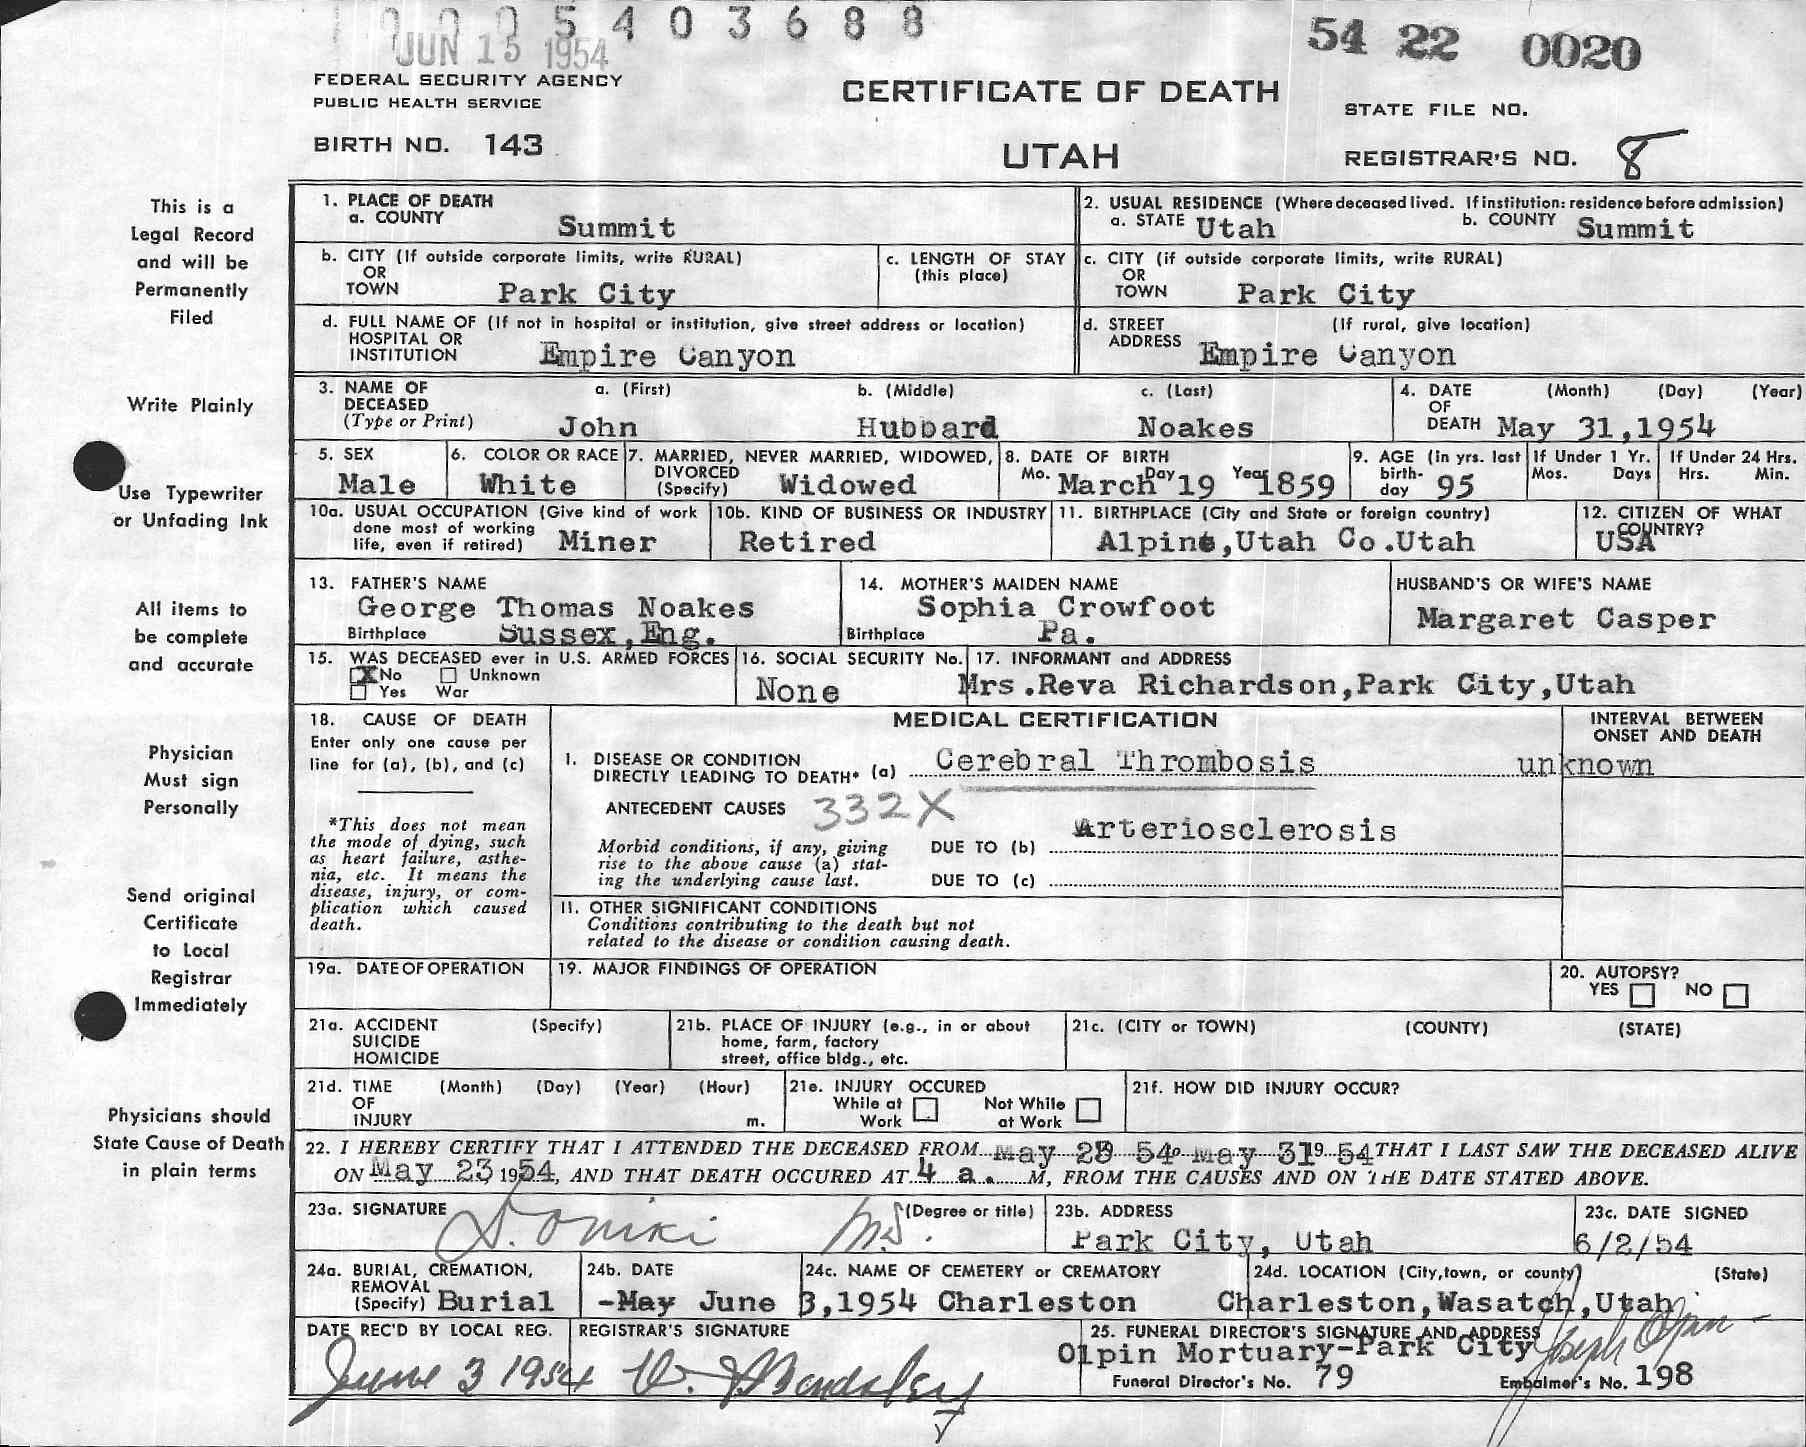 5 4 0 3 6 8 8
JUN 15 1954
54 22 0020
FEDERAL SECURITY AGENCY
PUBLIC HEALTH SERVICE
CERTIFICATE OF DEATH
STATE FILE NO.
BIRTH NO. 143
UTAH
REGISTRAR'S NO. 8
This is a
Legal Record
and will be
Permanently
Filed
Write Plainly
Use Typewriter
or Unfading Ink
All items to
be complete
and accurate
Physician
Must sign
Personally
Send original
Certificate
to Local
Registrar
Immediately
Physicians should
State Cause of Death
in plain terms
1. PLACE OF DEATH
a. COUNTY Summit
2. USUAL RESIDENCE (Where deceased lived. If institution: residence before admission)
a. STATE Utah b. COUNTY Summit
b. CITY (If outside corporate limits, write RURAL)
OR
TOWN Park City
c. LENGTH OF STAY
(this place)
c. CITY (if outside corporate limits, write RURAL)
OR
TOWN Park City
d. FULL NAME OF (If not in hospital or institution, give street address or location)
HOSPITAL OR
INSTITUTION Empire Canyon
d. STREET (If rural, give location)
ADDRESS Empire Canyon
3. NAME OF a. (First) b. (Middle) c. (Last)
DECEASED
(Type or Print) John Hubbard Noakes
4. DATE (Month) (Day) (Year)
OF
DEATH May 31,1954
5. SEX
Male
6. COLOR OR RACE
White
7. MARRIED, NEVER MARRIED, WIDOWED,
DIVORCED
(Specify) Widowed
8. DATE OF BIRTH
Mo. March Day 19 Year 1859
9. AGE (In yrs. last
birth-
day 95
If Under 1 Yr.
Mos. Days
If Under 24 Hrs.
Hrs. Min.
10a. USUAL OCCUPATION (Give kind of work
done most of working
life, even if retired) Miner
10b. KIND OF BUSINESS OR INDUSTRY
Retired
11. BIRTHPLACE (City and State or foreign country)
Alpine,Utah Co.Utah
12. CITIZEN OF WHAT
COUNTRY?
USA
13. FATHER'S NAME
George Thomas Noakes
Birthplace Sussex,Eng.
14. MOTHER'S MAIDEN NAME
Sophia Crowfoot
Birthplace Pa.
HUSBAND'S OR WIFE'S NAME
Margaret Casper
15. WAS DECEASED ever in U.S. ARMED FORCES
X No Unknown
Yes War
16. SOCIAL SECURITY No.
None
17. INFORMANT and ADDRESS
Mrs.Reva Richardson,Park City,Utah
18. CAUSE OF DEATH
Enter only one cause per
line for (a), (b), and (c)
*This does not mean
the mode of dying, such
as heart failure, asthe-
nia, etc. It means the
disease, injury, or com-
plication which caused
death.
MEDICAL CERTIFICATION
INTERVAL BETWEEN
ONSET AND DEATH
I. DISEASE OR CONDITION
DIRECTLY LEADING TO DEATH* (a) Cerebral Thrombosis unknown
ANTECEDENT CAUSES 332X
Morbid conditions, if any, giving
rise to the above cause (a) stat-
ing the underlying cause last.
DUE TO (b) Arteriosclerosis
DUE TO (c)
II. OTHER SIGNIFICANT CONDITIONS
Conditions contributing to the death but not
related to the disease or condition causing death.
19a. DATE OF OPERATION
19. MAJOR FINDINGS OF OPERATION
20. AUTOPSY?
YES NO
21a. ACCIDENT (Specify)
SUICIDE
HOMICIDE
21b. PLACE OF INJURY (e.g., in or about
home, farm, factory
street, office bldg., etc.
21c. (CITY or TOWN) (COUNTY) (STATE)
21d. TIME (Month) (Day) (Year) (Hour)
OF
INJURY m.
21e. INJURY OCCURED
While at Not While
Work at Work
21f. HOW DID INJURY OCCUR?
22. I HEREBY CERTIFY THAT I ATTENDED THE DECEASED FROM May 54 May 31 19 54 THAT I LAST SAW THE DECEASED ALIVE
ON May 23 1954, AND THAT DEATH OCCURED AT 4 a. M, FROM THE CAUSES AND ON THE DATE STATED ABOVE.
23a. SIGNATURE (Degree or title)
23b. ADDRESS
Park City, Utah
23c. DATE SIGNED
6/2/54
24a. BURIAL, CREMATION,
REMOVAL
(Specify) Burial
24b. DATE
-May June 3,1954
24c. NAME OF CEMETERY or CREMATORY
Charleston
24d. LOCATION (City,town, or county) (State)
Charleston,Wasatch,Utah
DATE REC'D BY LOCAL REG.
June 3 1954
REGISTRAR'S SIGNATURE
25. FUNERAL DIRECTOR'S SIGNATURE AND ADDRESS
Olpin Mortuary-Park City Joseph Olpin
Funeral Director's No. 79 Embalmer's No. 198